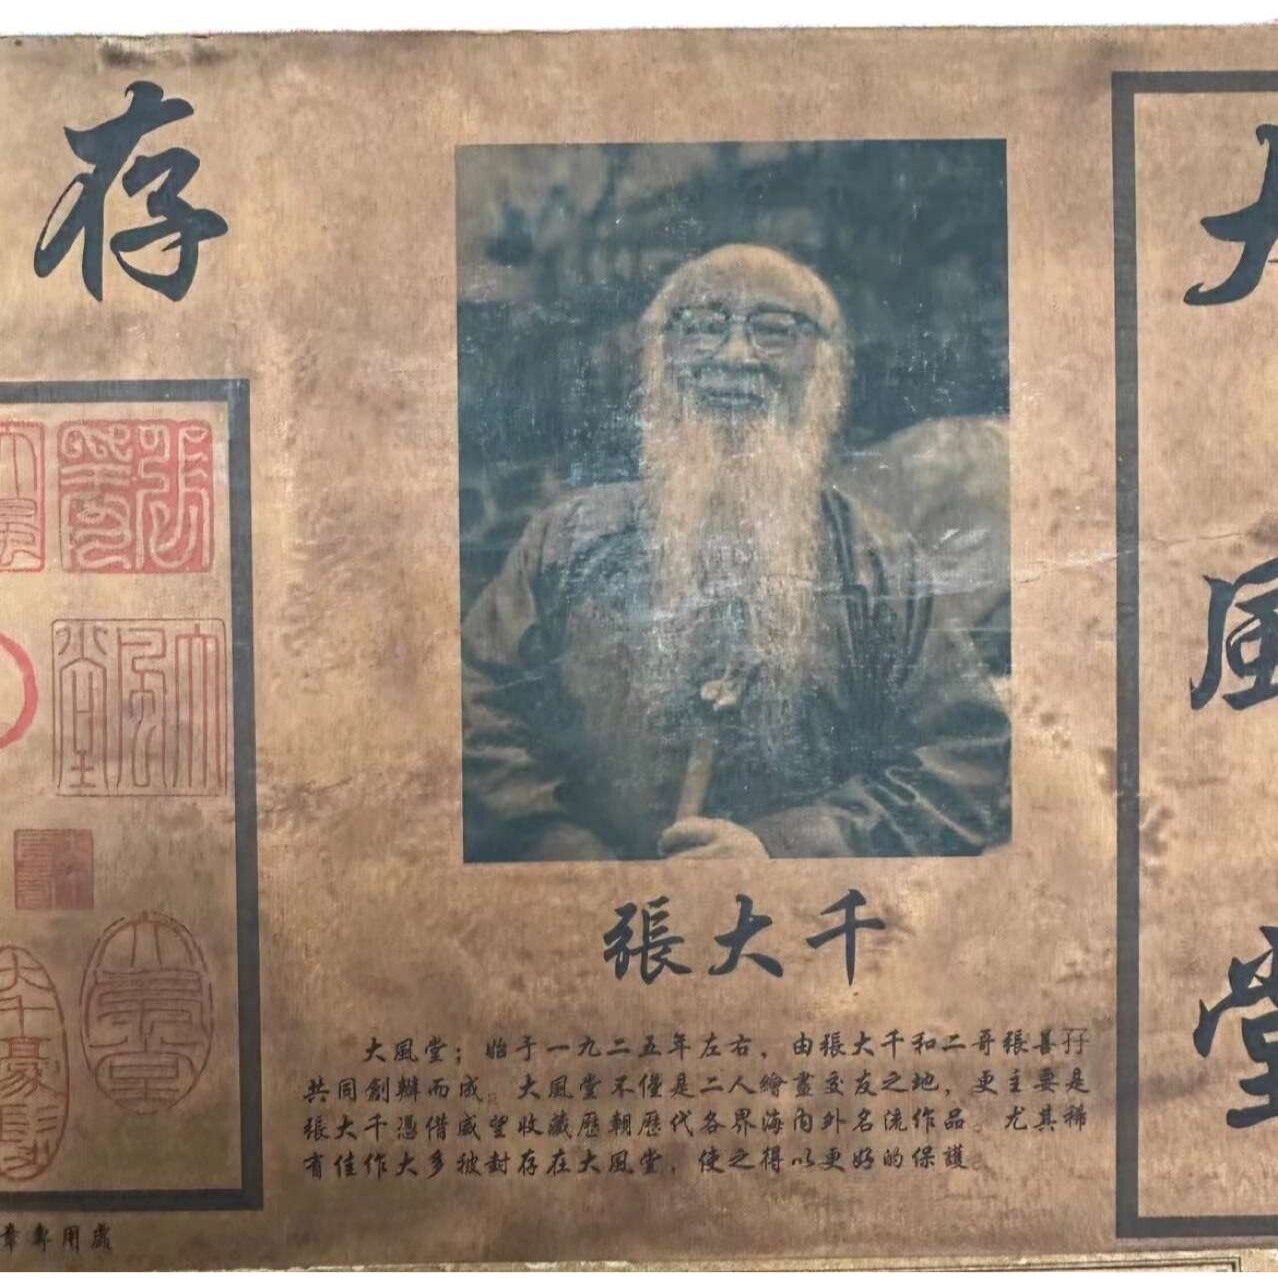 存
大
風
堂
張大千
大風堂；始于一九二五年左右，由張大千和二哥張善孖
共同創辦而成。大風堂不僅是二人繪畫交友之地，更主要是
張大千憑借威望收藏歷朝歷代各界海内外名流作品。尤其稀
有佳作大多被封存在大風堂，使之得以更好的保護。
大風堂
大千豪髮
章專用處